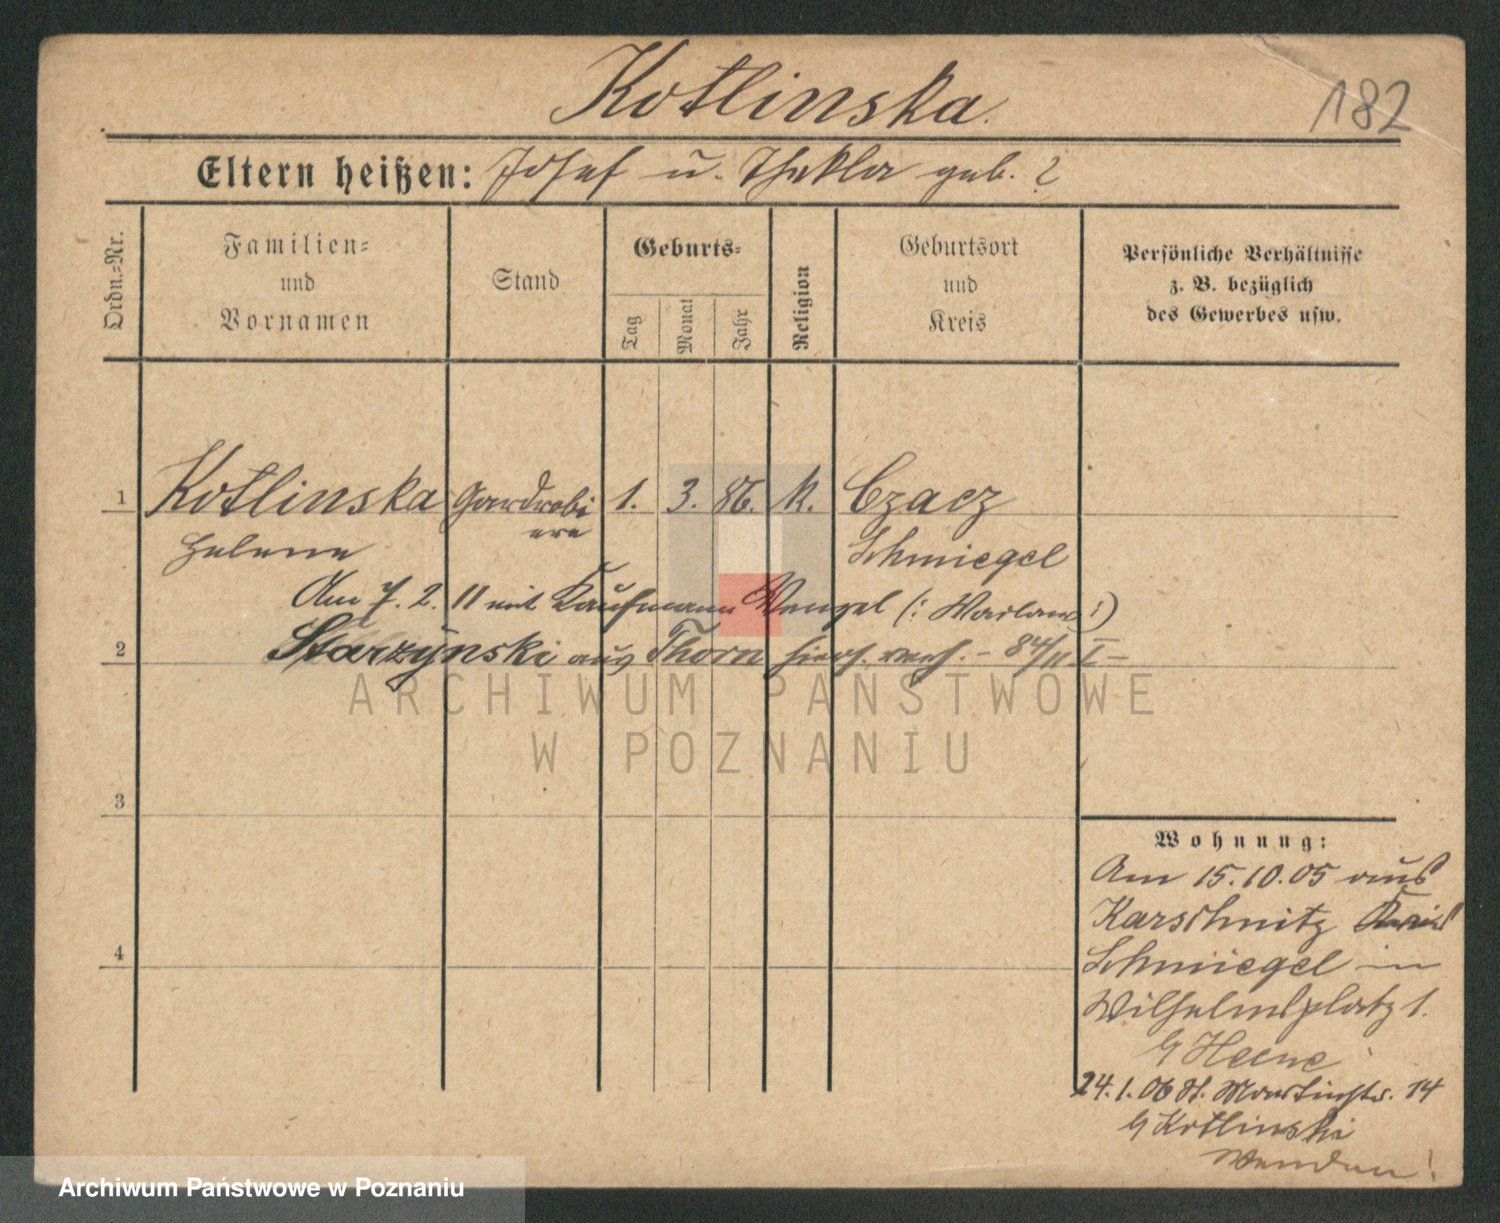 Kotlinska.
182
Eltern heißen: Josef u. Thekla geb. ?
Ordn.-Nr.
Familien-
und
Vornamen
Stand
Geburts-
Tag
Monat
Jahr
Religion
Geburtsort
und
Kreis
Persönliche Verhältnisse
z. B. bezüglich
des Gewerbes usw.
1 Kotlinska Gardrobi 1. 3. 86. k. Czacz
ere
Helene Schmiegel
Am 7. 2. 11 mit Kaufmann Wenzel (: :)
2 Starzynski aus Thorn hier verh. - 84/11 I -
ARCHIWUM PAŃSTWOWE
W POZNANIU
3
4
Wohnung:
Am 15.10.05 aus
Karschnitz Kreis
Schmiegel in
Wilhelmsplatz 1.
b/ Heene
24.1.06 St. Martinstr. 14
b/ Kotlinski
Wenden!
Archiwum Państwowe w Poznaniu